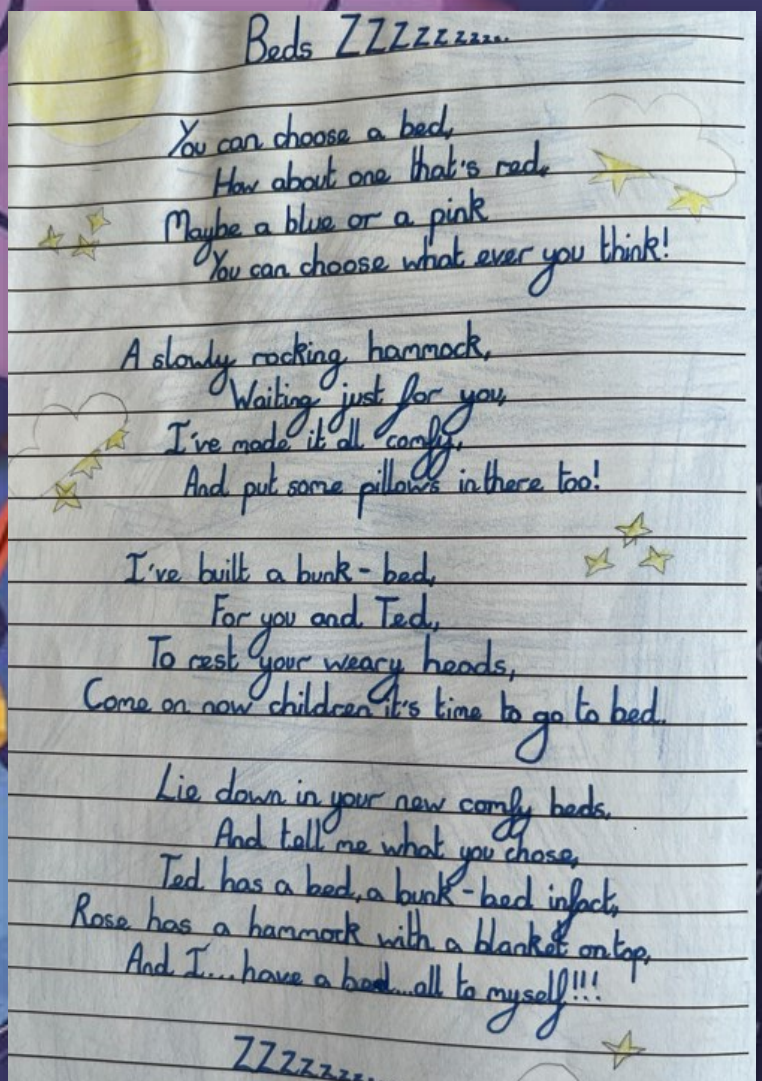 Beds ZZZzzzzzz...
You can choose a bed,
How about one that's red,
Maybe a blue or a pink
You can choose what ever you think!
A slowly rocking hammock,
Waiting just for you,
I've made it all comfy,
And put some pillows in there too!
I've built a bunk-bed,
For you and Ted,
To rest your weary heads,
Come on now children it's time to go to bed.
Lie down in your new comfy beds,
And tell me what you chose,
Ted has a bed, a bunk-bed infact,
Rose has a hammock with a blanket on top,
And I...have a bed...all to myself!!!
ZZZzzzz...